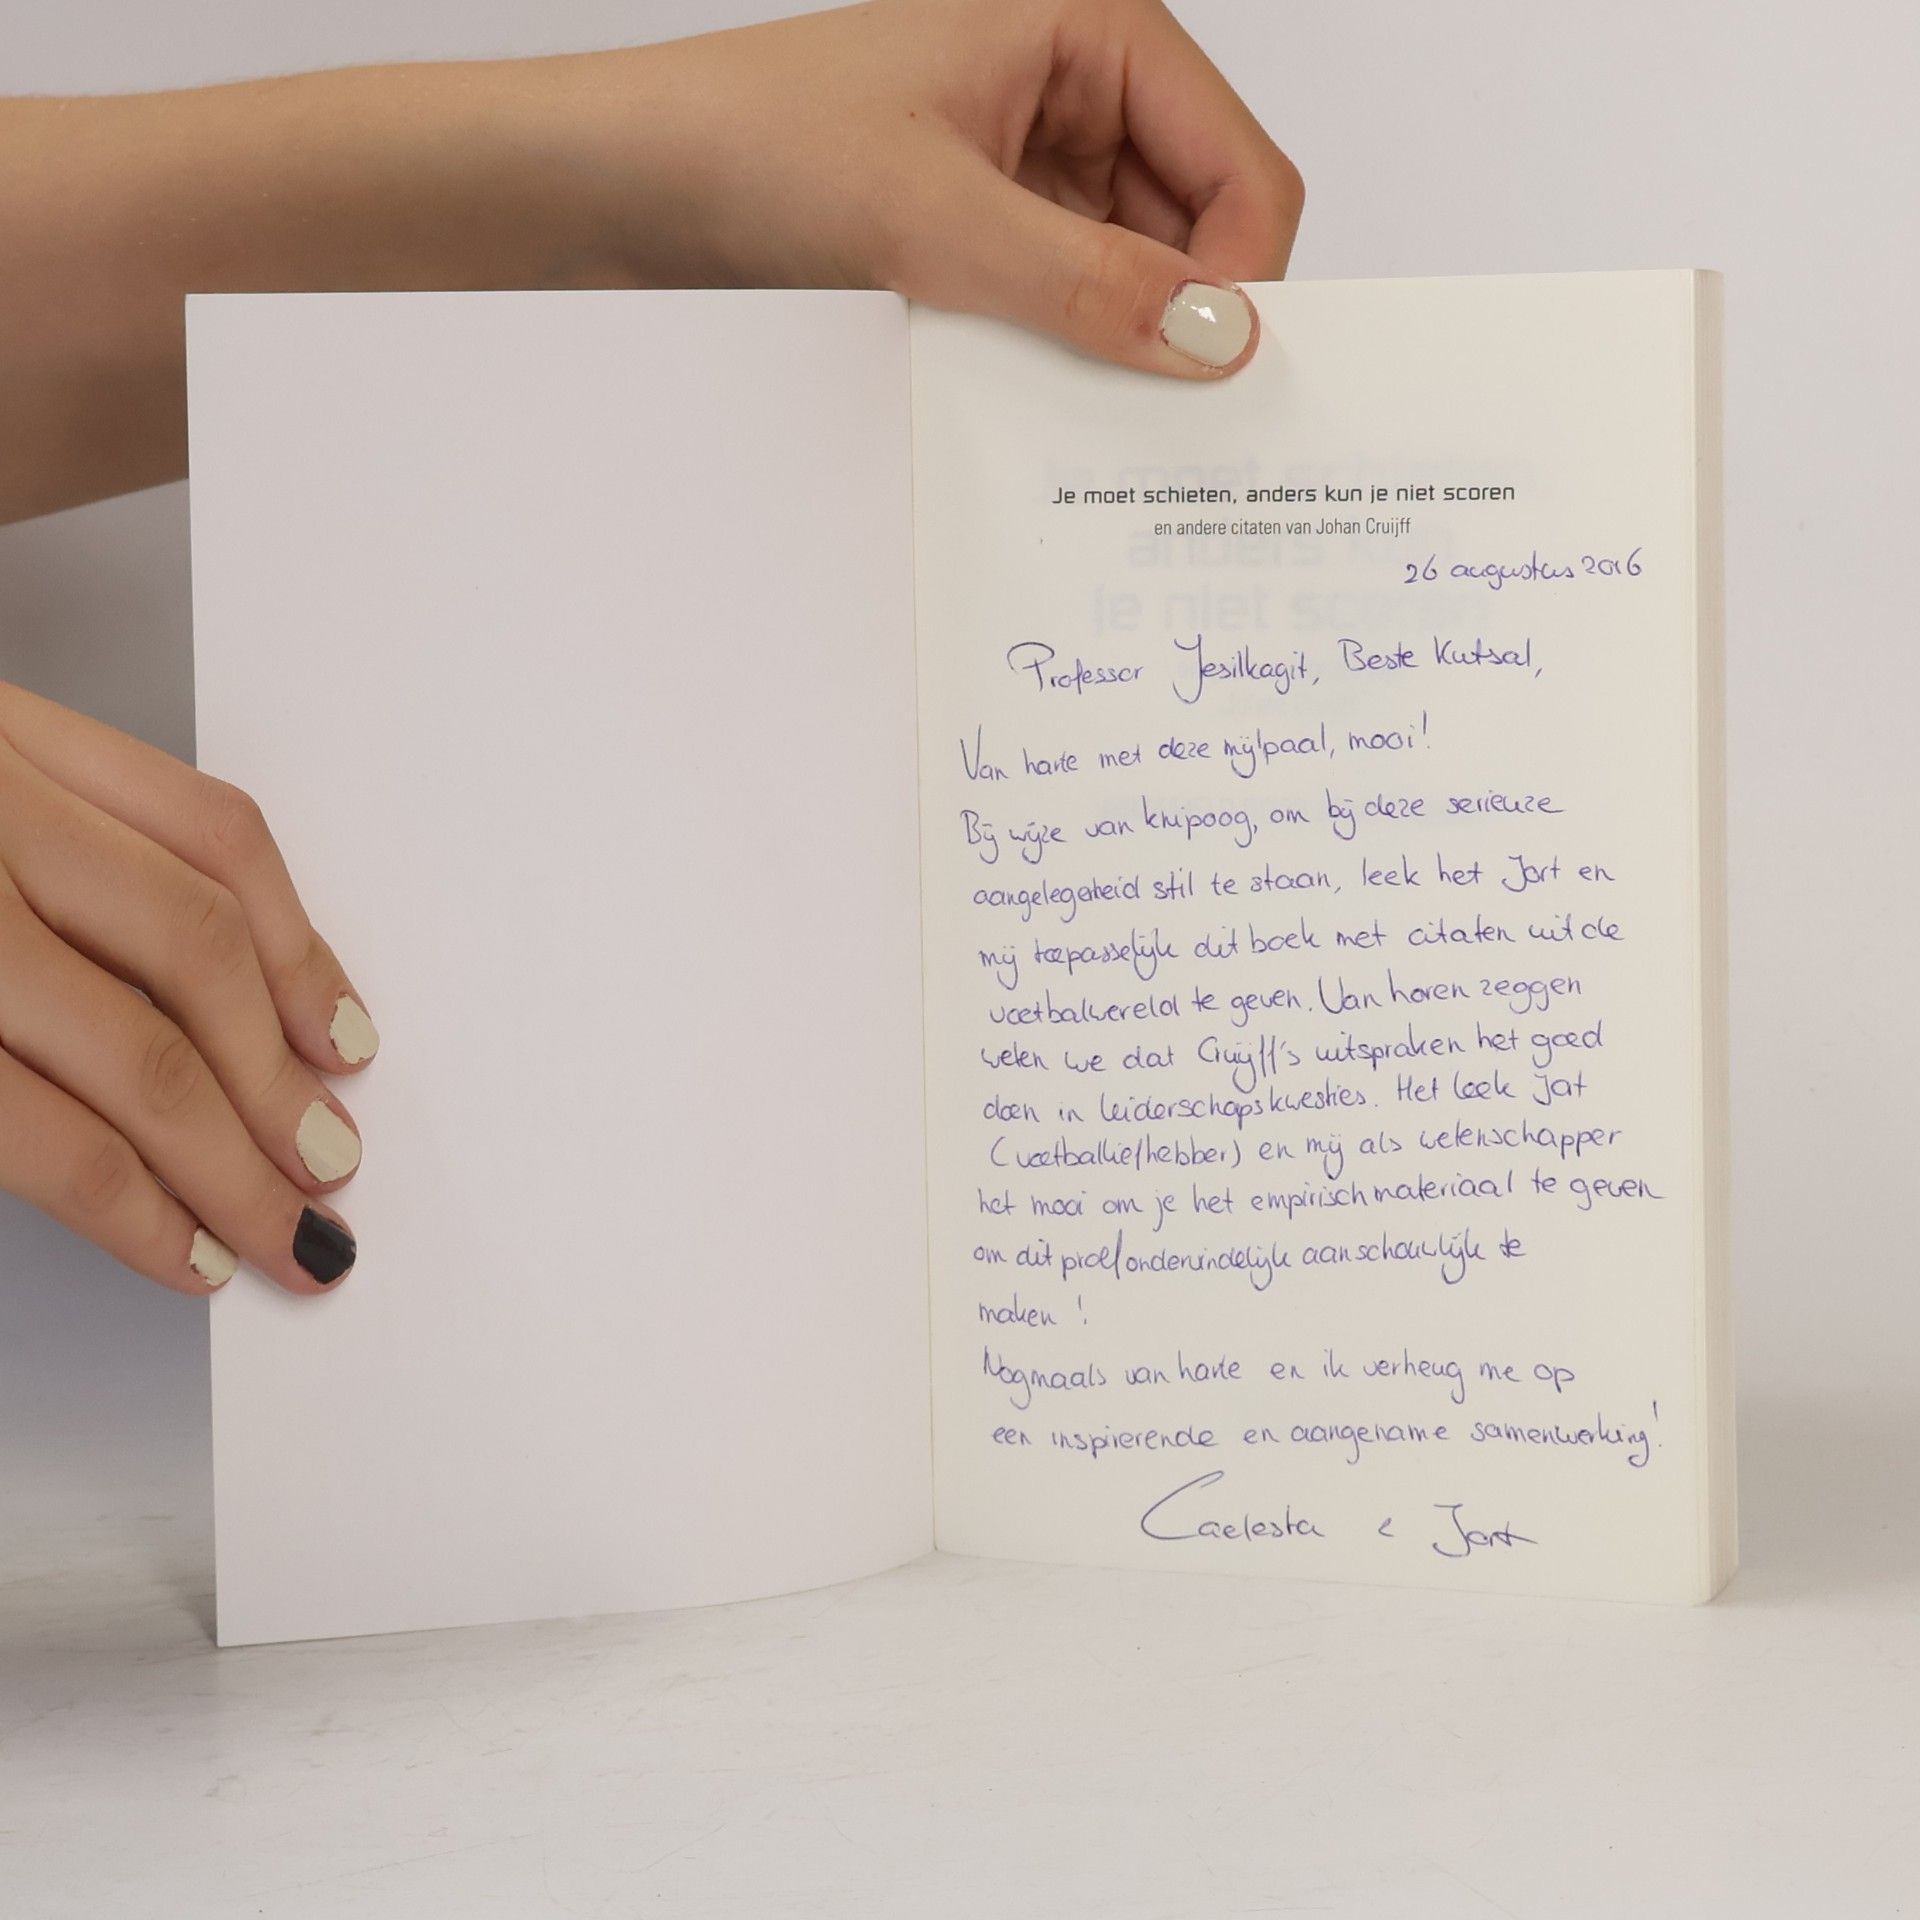 Je moet schieten, anders kun je niet scoren
en andere citaten van Johan Cruijff
26 augustus 2016
Professor Yesilkagit, Beste Kutsal,
Van harte met deze mijlpaal, mooi!
Bij wijze van knipoog, om bij deze serieuze
aangelegenheid stil te staan, leek het Jort en
mij toepasselijk dit boek met citaten uit de
voetbalwereld te geven. Van horen zeggen
weten we dat Cruijff's uitspraken het goed
doen in leiderschapskwesties. Het leek Jort
(voetballiefhebber) en mij als wetenschapper
het mooi om je het empirisch materiaal te geven
om dit proefondervindelijk aanschouwlijk te
maken !
Nogmaals van harte en ik verheug me op
een inspirerende en aangename samenwerking!
Caelesta & Jort